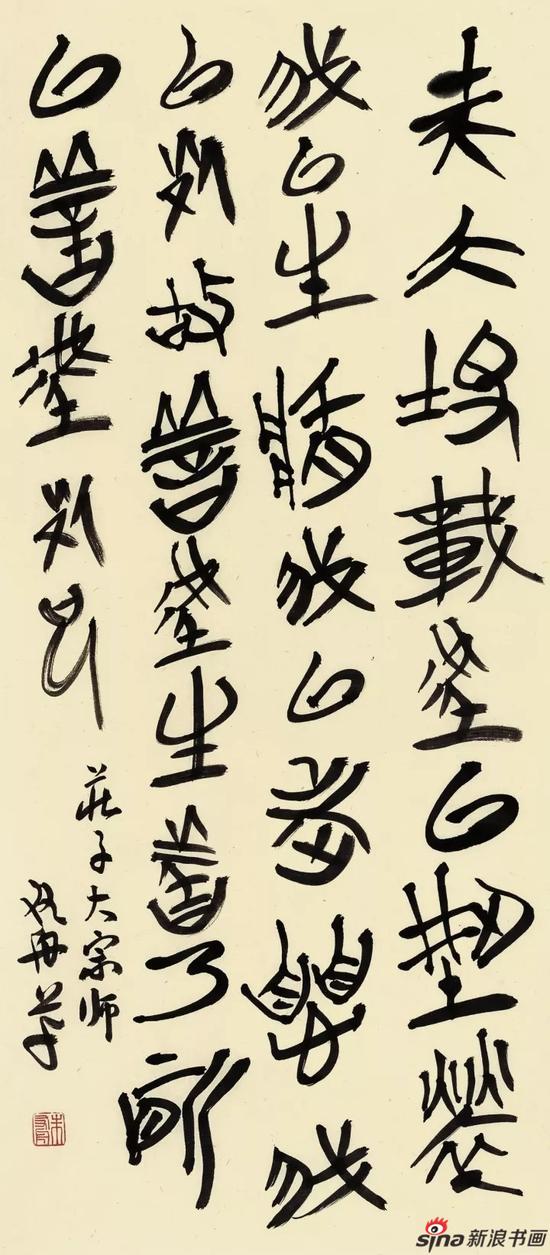 夫大塊載我以型勞
我以生佚我以老息我
以死故善吾生者乃所
以善吾死也
莊子大宗师
sina新浪书画